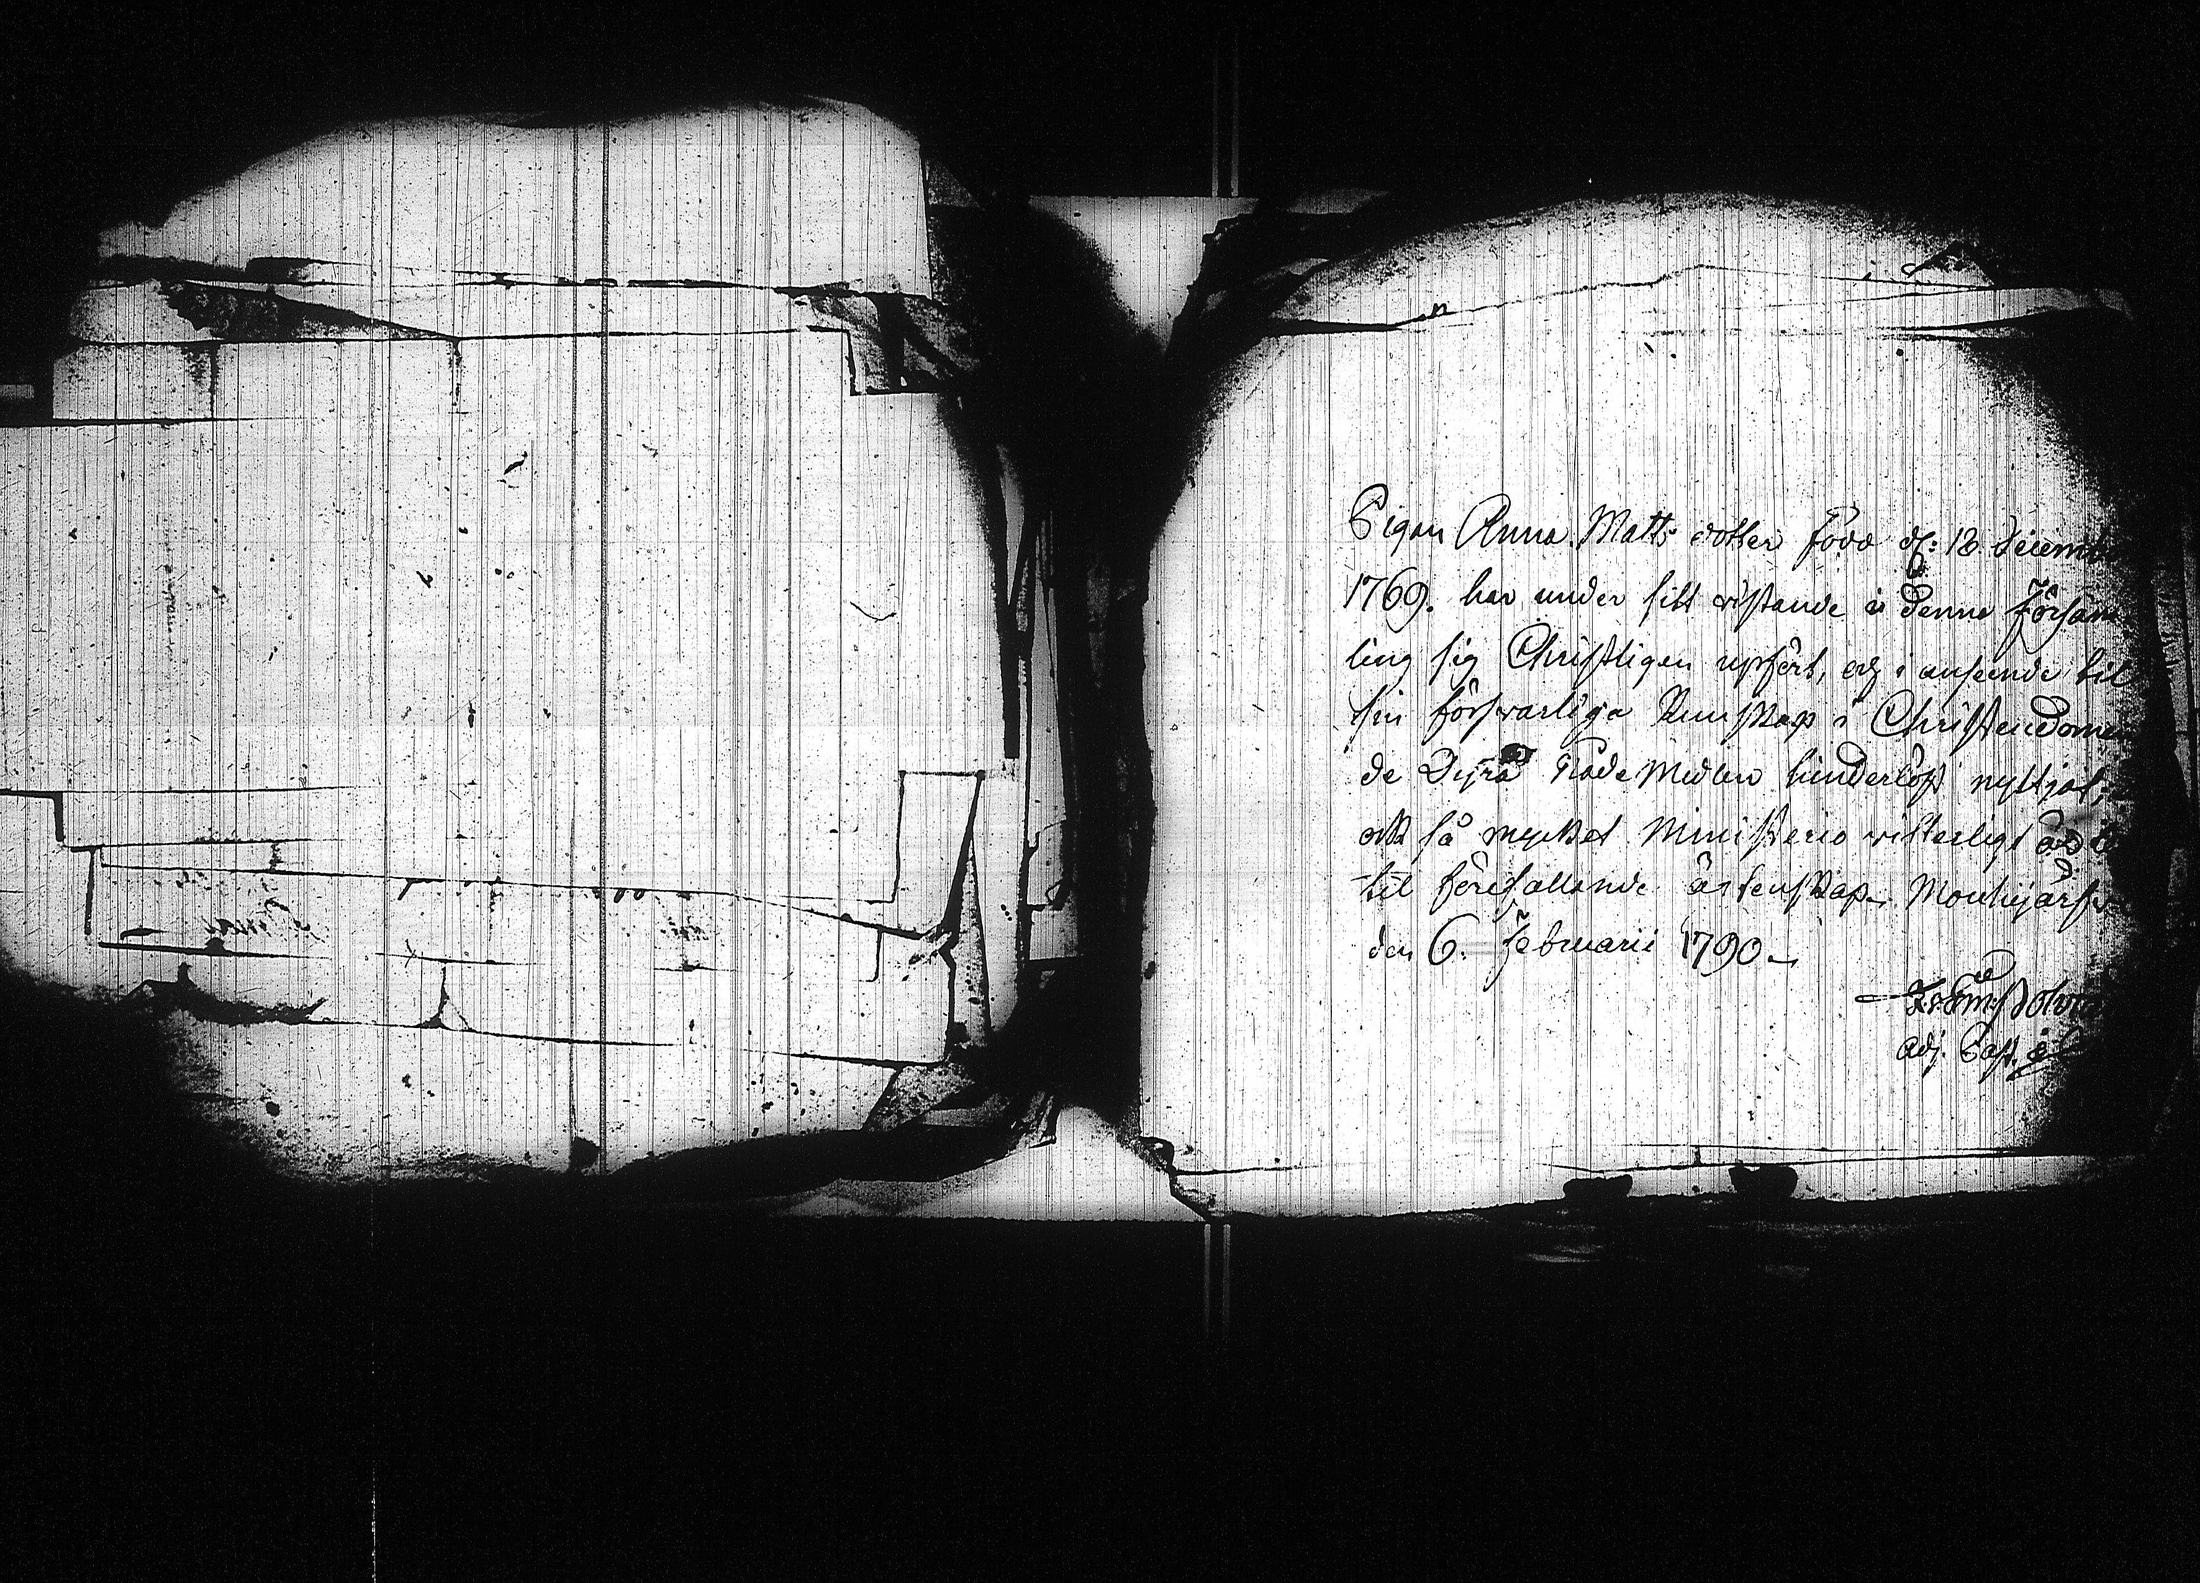 Pigan Anna Matts dotter född d: 18 Decemb
1769. har under sitt vistande i denna Försam
ling sig Christligen upfört, och i anseende til
sin försvarliga Kunskap i Christendome
de Dyra Nåde Medlen hinderlöst nyttjat,
ock så mycket Ministerio vitterligt är
til förefallande äcktenskap. Mouhijärfv
den 6. Februarii 1790
Adj. Past.